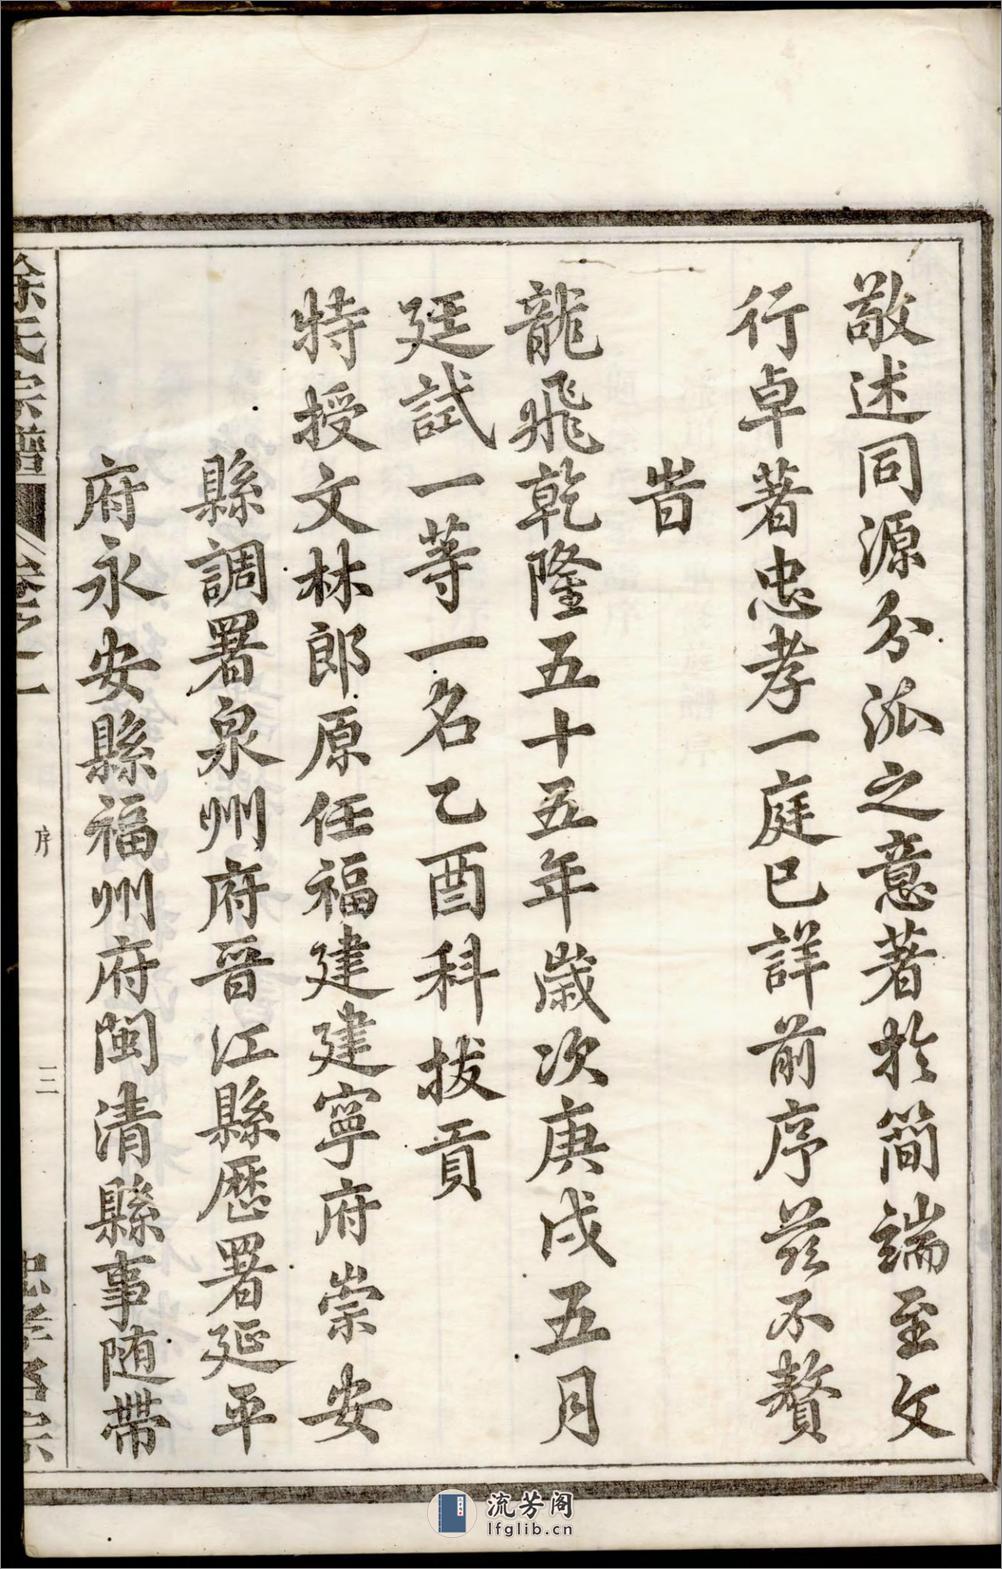 敬述同源分派之意著於簡端至文
行卓著忠孝一庭已詳前序茲不贅
旹
龍飛乾隆五十五年歲次庚戌五月
廷試一等一名乙酉科拔貢
特授文林郎原任福建建寧府崇安
縣調署泉州府晉江縣歷署延平
府永安縣福州府閩清縣事随帶
徐氏宗譜
卷之一
序
三
忠孝名宗
流芳阁
lfglib.cn